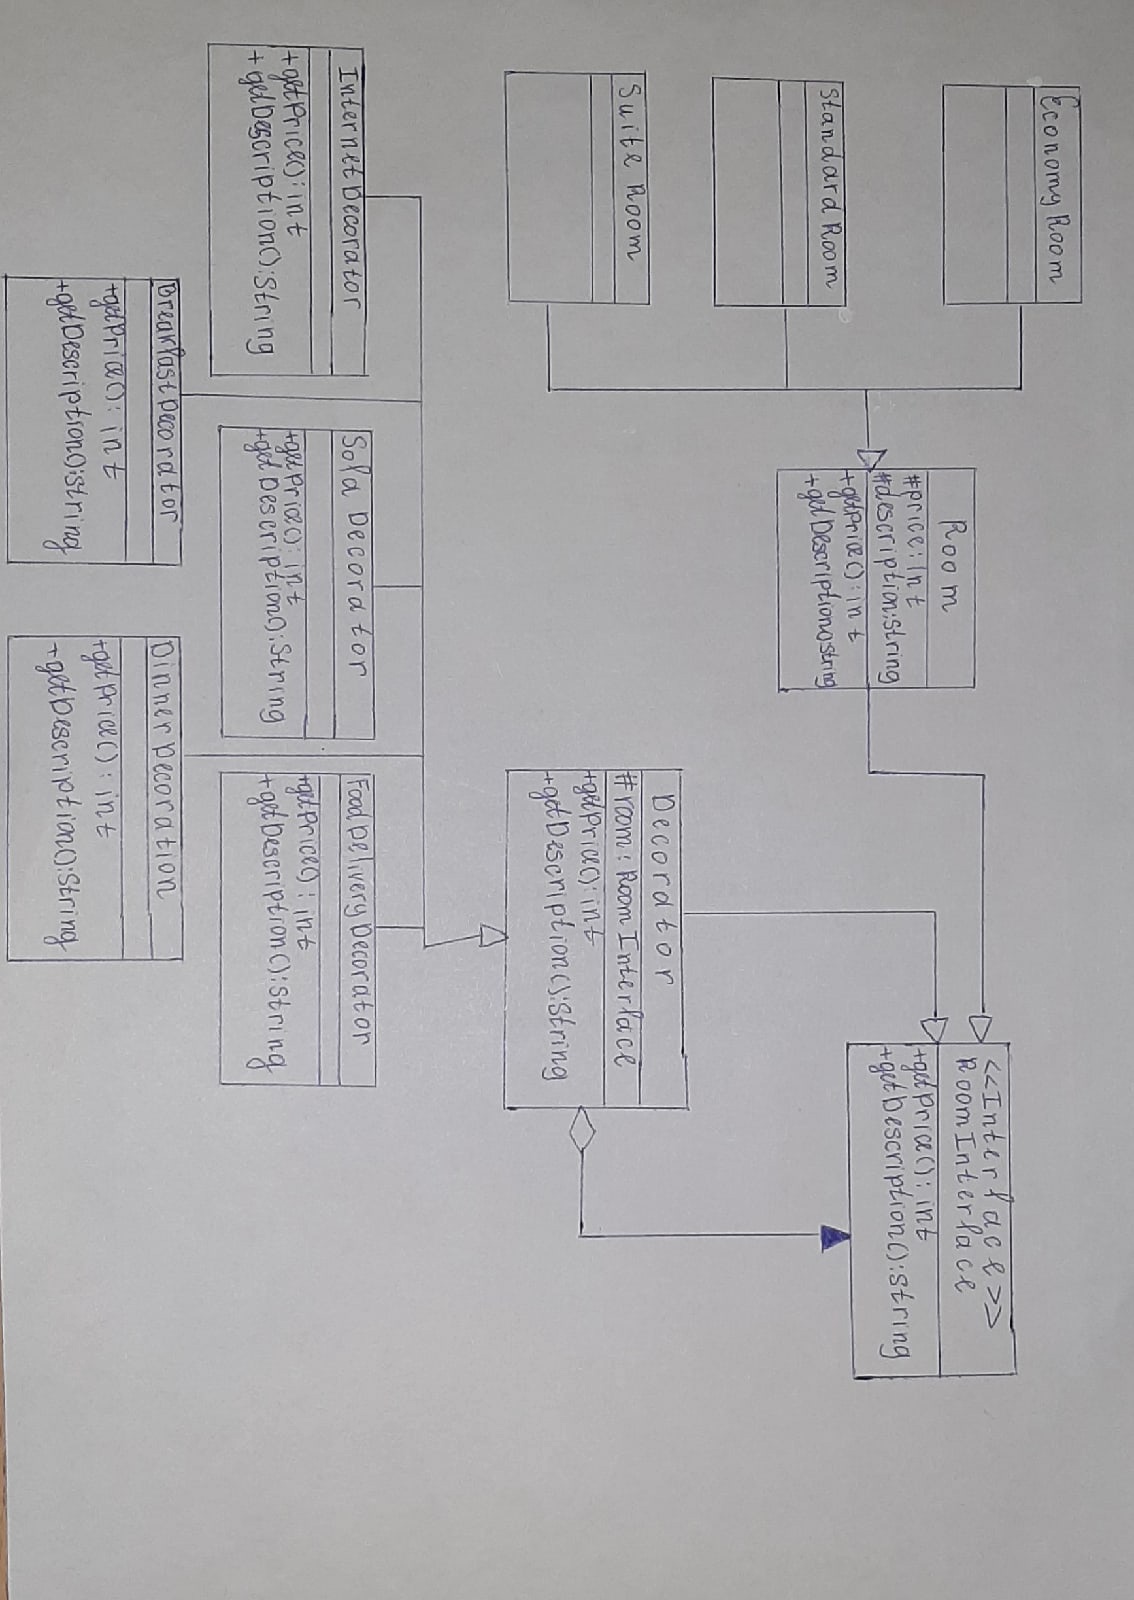 EconomyRoom
Standard Room
Suite Room
Room
#price:int
#description:String
+getPrice():int
+getDescription():String
<<Interface>>
RoomInterface
+getPrice():int
+getDescription():String
Decorator
#room:RoomInterface
+getPrice():int
+getDescription():String
InternetDecorator
+getPrice():int
+getDescription():String
Sofa Decorator
+getPrice():int
+getDescription():String
FoodDeliveryDecorator
+getPrice():int
+getDescription():String
BreakfastDecorator
+getPrice():int
+getDescription():String
DinnerDecoration
+getPrice():int
+getDescription():String